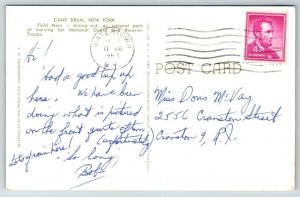 CAMP DRUM, NEW YORK
Field Mess — dining out, an integral part
of training for National Guard and Reserve
Troops.
POST CARD
4¢
Hi!
Had a good trip up
here. We have been
doing what is pictured
on the front quite often
(unfortunately)
lots of room here! So long
Bob
Miss Doris McVay
2556 Cranston Street
Cranston 9, R.I.